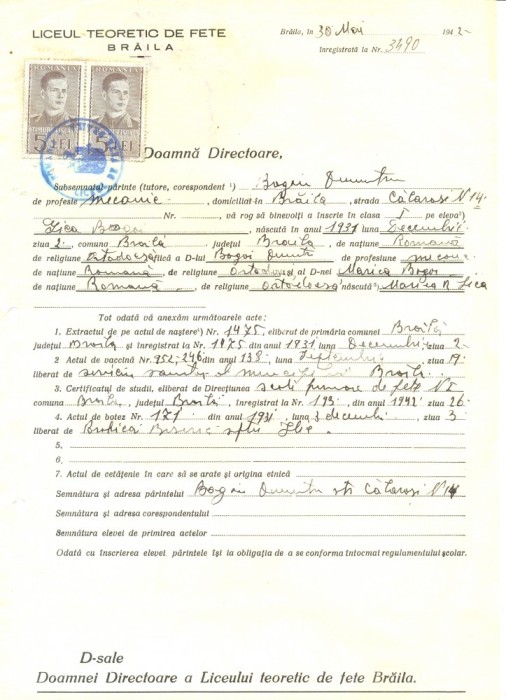 LICEUL TEORETIC DE FETE
BRĂILA
Brăila, în 30 Mai 1942
Înregistrată la Nr. 3490
ROMANIA ROMANIA
5 LEI 5 LEI
Doamnă Directoare,
Subsemnatul părinte (tutore, corespondent ¹) Bogoi Dumitru
de profesie mecanic, domiciliat în Brăila, strada Călăraşi N 14
Nr. , vă rog să binevoiţi a înscrie în clasa I pe eleva²)
Lica Bogoi , născută în anul 1931 luna Decembrie
ziua 2, comuna Brăila judeţul Braila, de naţiune Română
de religiune Ortodoesă fiică a D-lui Bogoi Dumitr de profesiune mecanic
de naţiune Romana, de religiune Ortodoes al D-nei Marica Bogoi
de naţiune Romană, de religiune Ortodoesa născută³) Marica R. Lica
Tot odată vă anexăm următoarele acte:
1. Extractul de pe actul de naştere¹) Nr. 1475, eliberat de primăria comunei Brăila
judeţul Braila şi înregistrat la Nr. 1475 din anul 1931 luna Decembrie, ziua 2
2 Actul de vaccină Nr. 952,246 din anul 138, luna Septembrie, ziua 19
liberat de serviciu sanitar al municipiului Braila
3. Certificatul de studii, eliberat de Direcţiunea scoli primare de fete N 5
comuna Braila, judeţul Brăila, înregistrat la Nr. 193 din anul 1942 ziua 26
4. Actul de botez Nr. 171 din anul 1931, luna 3 decembri, ziua 3
liberat de Biseric Ilie
5.
6.
7. Actul de cetăţenie în care să se arate şi origina etnică
Semnătura şi adresa părintelui Bogoi Dumitru str Călăraşi N 14
Semnătura şi adresa corespondentului
Semnătura elevei de primirea actelor
Odată cu înscrierea elevei părintele îşi ia obligaţia de a se conforma întocmai regulamentului şcolar.
D-sale
Doamnei Directoare a Liceului teoretic de fete Brăila.